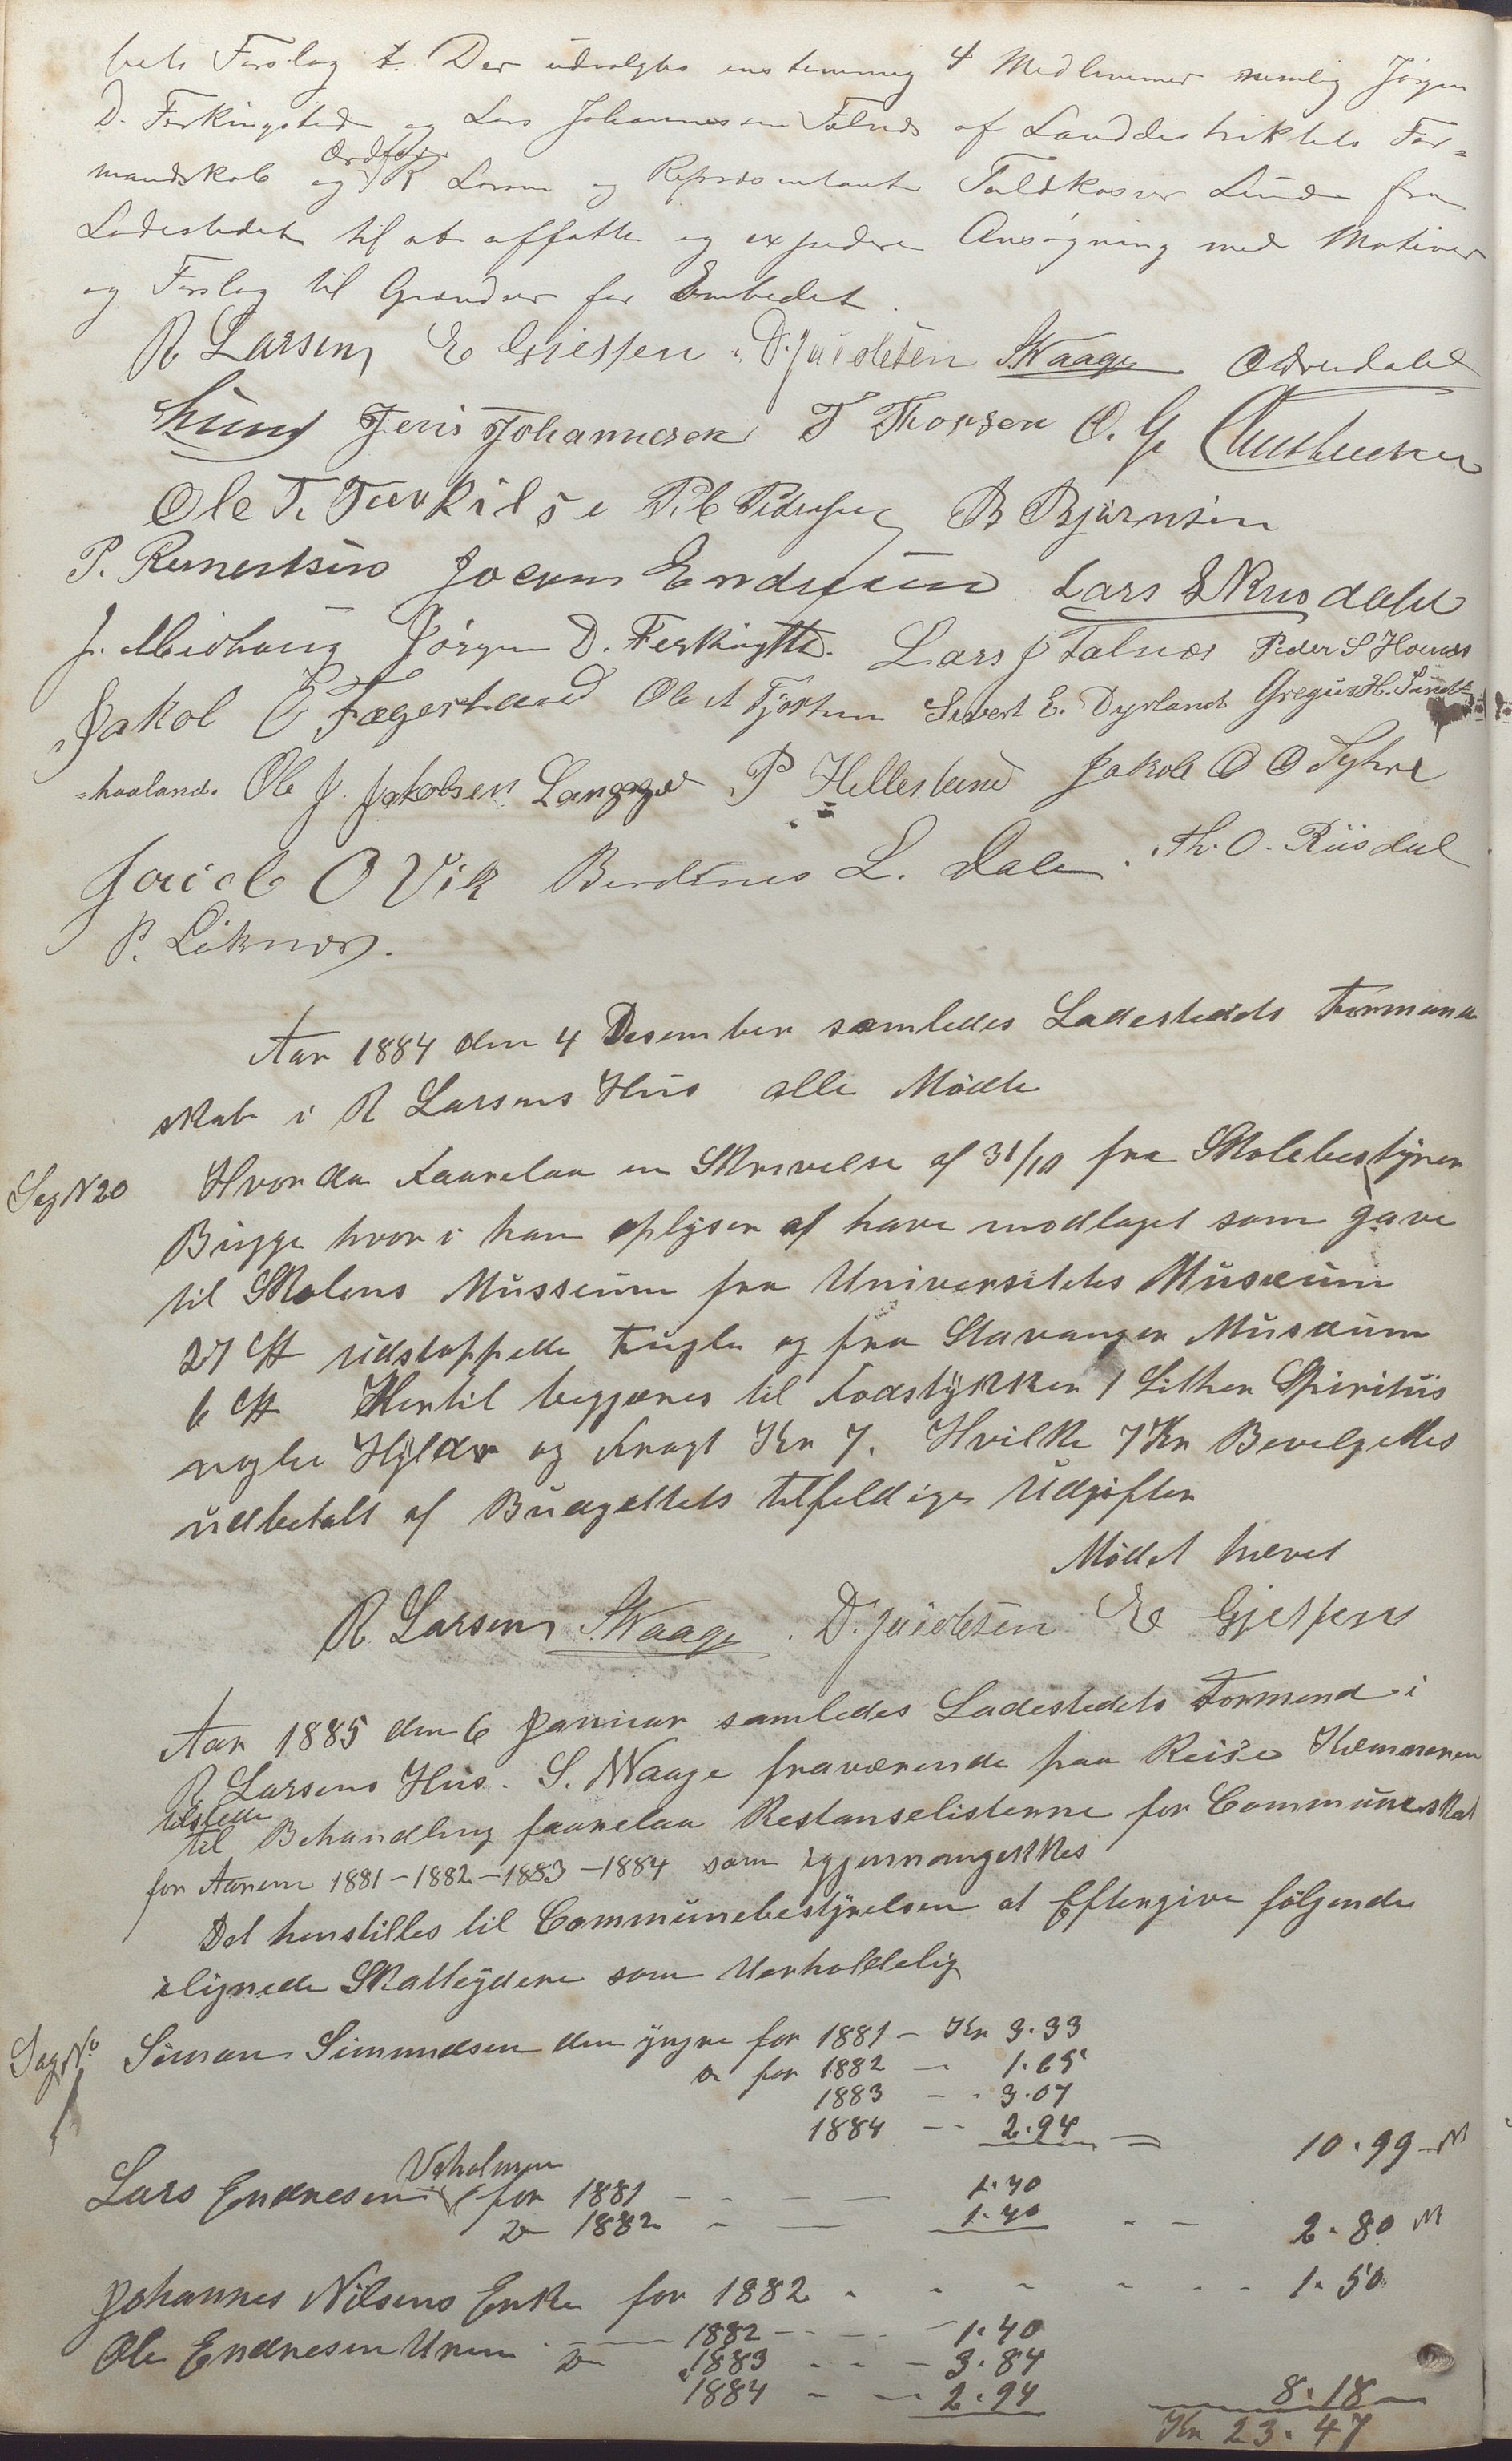 bets Forslag t. Der udvalgtes enstemmig 4 Medlemmer nemlig Jørgen
D. Ferkingstad og Lars Johannesen Falnes af Landdistriktets For=
mandskab og Ordfører R Larsen og Repræsentant Toldkasser Lund fra
Ladestedet til at affatte og expedere Ansøgning med Motiver
og Forslag til Grændser for Embedet.
R Larsen E Gjessen D. Jacobsen S. Waage O Aredahl
Lund Jens Johannesen T Thorsen O. G
Ole T. Torkilse P. C. Pedersen B Bjørnsen
P. Reinertsen Jocum Endresen Lars S Risdahl
J. Midhaug Jørgen D. Ferkingstd. Lars J Falnes Peder S Hovnes
Jakob E Fagerland Ole A Tjøsten Sivert E. Dyrland Gregus H. Sand
=haaland. Ole J. Jakobsen Langager P Hellesland Jakob O O Syhre
Jacob O Vik Berdines L. Dale. Th. O. Riisdal
P. Liknes.
Aar 1884 den 4 Desember samledes Ladestedets Formand
skab i R Larsens Hus alle Mødte
Sag N 20 Hvor da faarelaa en Skrivelse af 31/10 fra Skolebestyrer
Bugge hvor i han oplyser at have modtaget som gave
til Skolens Musseum fra Universitets Musæum
27 St udstoppede Fugle og fra Stavanger Musæum
6 St Hertil begjæres til Fodstykker 1 Litter Spiritus
nogle Hylder og Fragt Kr 7. Hvilke 7 Kr Bevilgettes
udbetalt af Budgettets tilfeldige Udgifter
Mødet hævet
R Larsen S. Waage D. Jacobsen E Gjessen
Aar 1885 den 6 Januar samledes Ladestedets Formend i
R Larsens Hus. S. Waage fraværende paa Reise Kæmneren
tilstede
til Behandling faarelaa Restanselisterne for Communeskat
for Aarene 1881 – 1882 – 1883 – 1884 som igjennemgikkes
Det henstilles til Communebestyrelsen at Eftergive følgende
ilignede Skatteydere som Uerholdelig
Sag No 1 Simon Simundsen den yngre for 1881 – Kr 3.33
do for 1882 – 1.65
1883 – 3.07
1884 – 2.94 = 10.99
Veholmen
Lars Endresen for 1881 – 1.40
do 1882 – 1.40 – 2.80
Johannes Nilsens Enke for 1882 – 1.50
Ole Endresen Uren – 1882 – 1.40
do 1883 – 3.84
1884 – 2.94 8.18
Kr 23.47